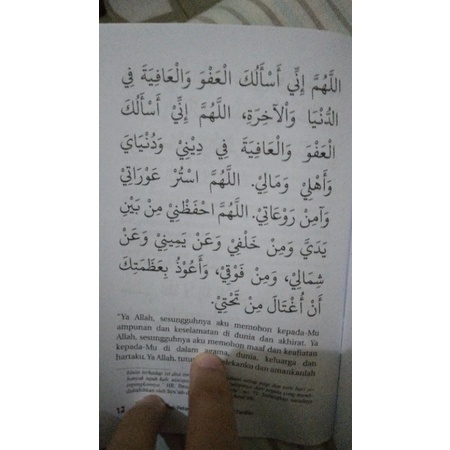 اللَّهُمَّ إِنِّي أَسْأَلُكَ الْعَفْوَ وَالْعَافِيَةَ فِي
الدُّنْيَا وَاْلآخِرَةِ، اللَّهُمَّ إِنِّيْ أَسْأَلُكَ
الْعَفْوَ وَالْعَافِيَةَ فِي دِيْنِيْ وَدُنْيَايَ
وَأَهْلِيْ وَمَالِيْ. اللَّهُمَّ اسْتُرْ عَوْرَاتِيْ
وَآمِنْ رَوْعَاتِيْ. اللَّهُمَّ احْفَظْنِيْ مِنْ بَيْنِ
يَدَيَّ وَمِنْ خَلْفِيْ وَعَنْ يَمِيْنِيْ وَعَنْ
شِمَالِيْ، وَمِنْ فَوْقِيْ، وَأَعُوْذُ بِعَظَمَتِكَ
أَنْ أُغْتَالَ مِنْ تَحْتِيْ.
"Ya Allah, sesungguhnya aku memohon kepada-Mu
ampunan dan keselamatan di dunia dan akhirat. Ya
Allah, sesungguhnya aku memohon maaf dan keafiatan
kepada-Mu di dalam agama, dunia, keluarga dan
hartaku. Ya Allah, dan amankanlah
12